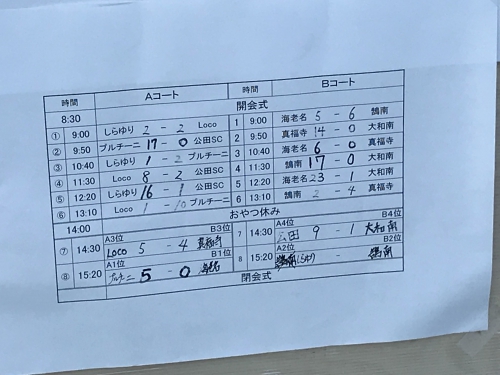 時間 Aコート 時間 Bコート
8:30 開会式
① 9:00 しらゆり 2 - 2 Loco 1 9:00 海老名 5 - 6 鵠南
② 9:50 プルチーニ 17 - 0 公田SC 2 9:50 真福寺 14 - 0 大和南
③ 10:40 しらゆり 1 - 2 プルチーニ 3 10:40 海老名 6 - 0 真福寺
④ 11:30 Loco 8 - 2 公田SC 4 11:30 鵠南 17 - 0 大和南
⑤ 12:20 しらゆり 16 - 1 公田SC 5 12:20 海老名 23 - 1 大和南
⑥ 13:10 Loco 1 - 10 プルチーニ 6 13:10 鵠南 2 - 4 真福寺
14:00 おやつ休み
A3位 B3位 A4位 B4位
⑦ 14:30 Loco 5 - 4 7 14:30 公田 9 - 1 大和南
A1位 B1位 A2位 B2位
⑧ 15:20 プルチーニ 5 - 0 8 15:20 - 鵠南
閉会式